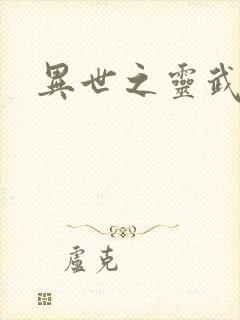 異世之靈武
盧克